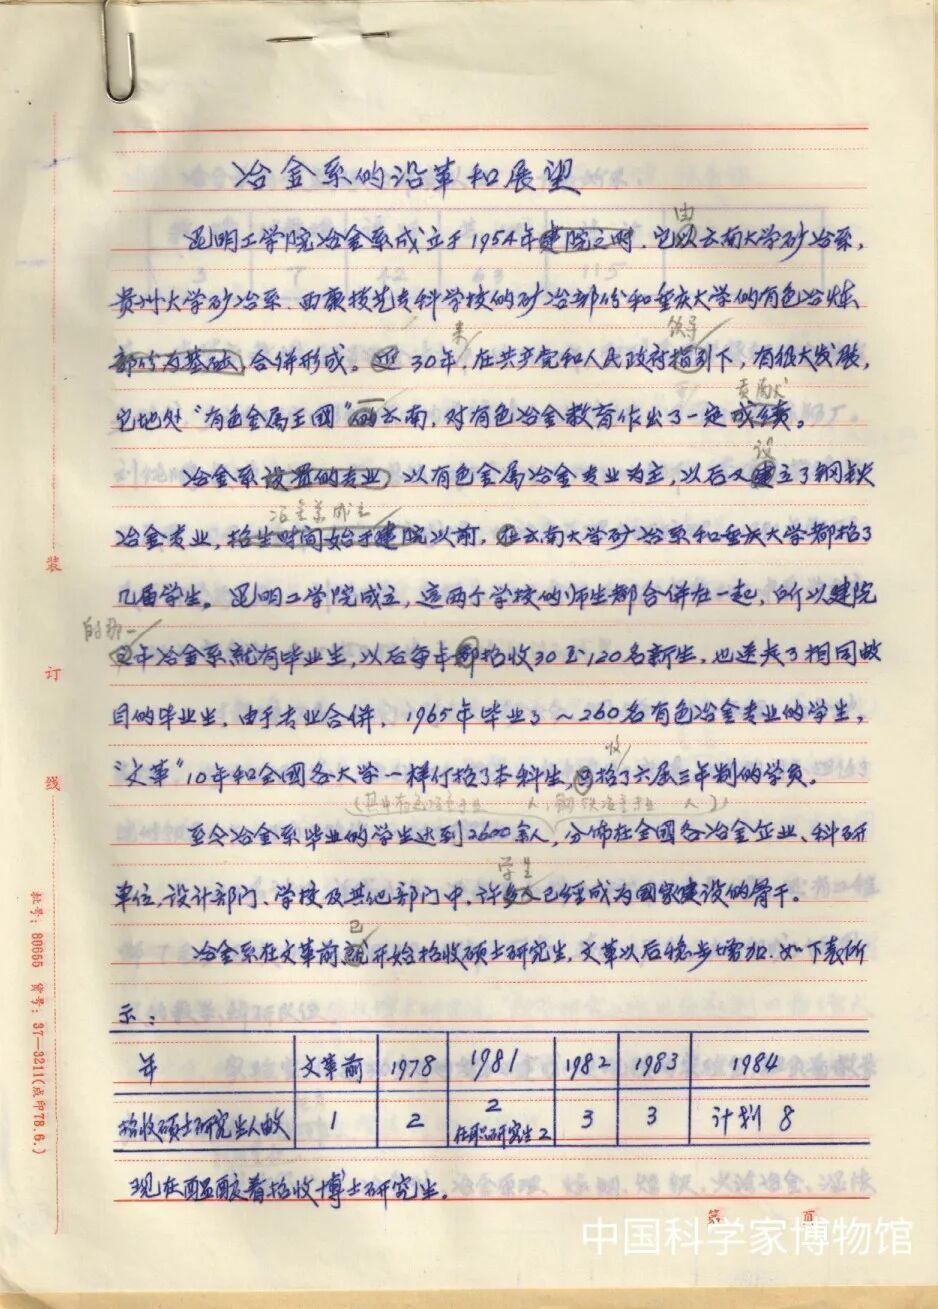 冶金系的沿革和展望
由
昆明工学院冶金系成立于1954年建院之时，它以云南大学矿冶系，
贵州大学矿冶系、西康技艺专科学校的矿冶部份和重庆大学的有色冶炼
来 领导
部份为基础，合併形成。 30年，在共产党和人民政府指引下，有很大发展，
贡献
它地处“有色金属王國”的云南，对有色冶金教育作出了一定成绩。
设
冶金系设置的专业，以有色金属冶金专业为主，以后又建立了钢铁
冶金系成立
冶金专业，招生时间始于建院以前，在云南大学矿冶系和重庆大学都招了
几届学生。昆明工学院成立，这两个学校的师生都合併在一起，所以建院
的那一
年冶金系就有毕业生，以后每年都招收30至120名新生，也送走了相同数
目的毕业生，由于专业合併，1965年毕业了～260名有色冶金专业的学生，
收
“文革”10年和全國各大学一样停招了本科生，招了六届三年制的学员。
（其中有色冶金专业 人，钢铁冶金专业 人）
至今冶金系毕业的学生达到2600余人，分佈在全國各冶金企业、科研
学生
单位，设计部门、学校及其他部门中，许多人已经成为國家建设的骨干。
已
冶金系在文革前就开始招收硕士研究生，文革以后稳步增加，如下表所
示：
年 文革前 1978 1981 1982 1983 1984
招收硕士研究生人数 1 2 2 在职研究生2 3 3 计划 8
现在酝酿着招收博士研究生。
装
订
线
批号：80655 货号：37—3211(点印78.6.)
第 页
中国科学家博物馆